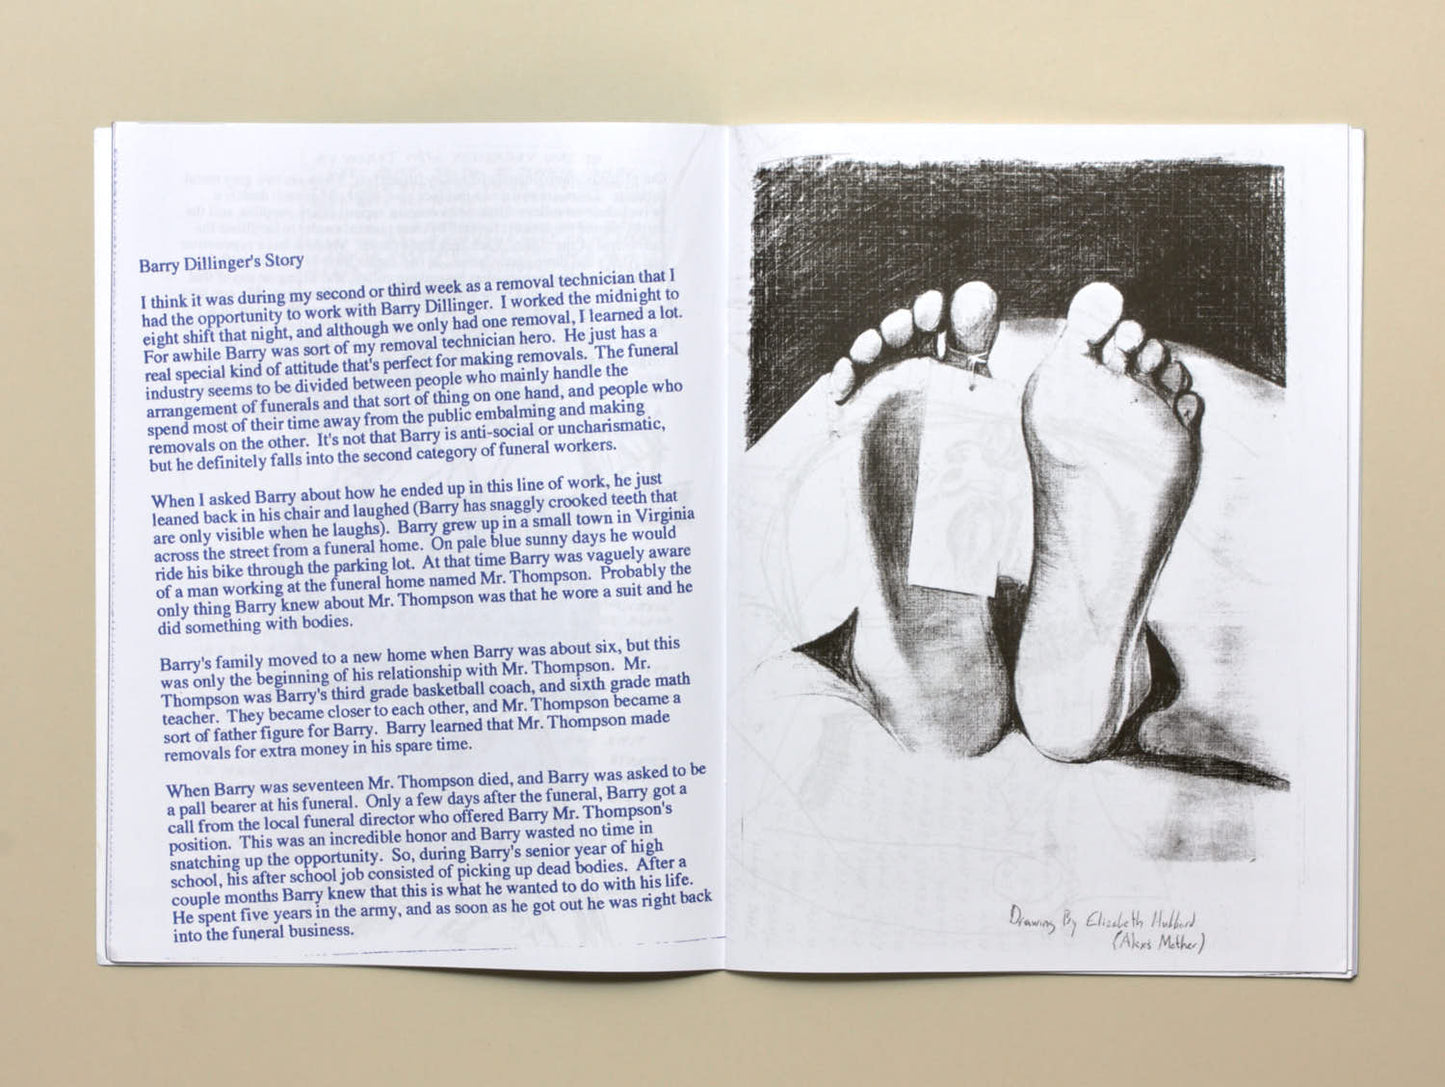 Barry Dillinger's Story
I think it was during my second or third week as a removal technician that I
had the opportunity to work with Barry Dillinger. I worked the midnight to
eight shift that night, and although we only had one removal, I learned a lot.
For awhile Barry was sort of my removal technician hero. He just has a
real special kind of attitude that's perfect for making removals. The funeral
industry seems to be divided between people who mainly handle the
arrangement of funerals and that sort of thing on one hand, and people who
spend most of their time away from the public embalming and making
removals on the other. It's not that Barry is anti-social or uncharismatic,
but he definitely falls into the second category of funeral workers.
When I asked Barry about how he ended up in this line of work, he just
leaned back in his chair and laughed (Barry has snaggly crooked teeth that
are only visible when he laughs). Barry grew up in a small town in Virginia
across the street from a funeral home. On pale blue sunny days he would
ride his bike through the parking lot. At that time Barry was vaguely aware
of a man working at the funeral home named Mr. Thompson. Probably the
only thing Barry knew about Mr. Thompson was that he wore a suit and he
did something with bodies.
Barry's family moved to a new home when Barry was about six, but this
was only the beginning of his relationship with Mr. Thompson. Mr.
Thompson was Barry's third grade basketball coach, and sixth grade math
teacher. They became closer to each other, and Mr. Thompson became a
sort of father figure for Barry. Barry learned that Mr. Thompson made
removals for extra money in his spare time.
When Barry was seventeen Mr. Thompson died, and Barry was asked to be
a pall bearer at his funeral. Only a few days after the funeral, Barry got a
call from the local funeral director who offered Barry Mr. Thompson's
position. This was an incredible honor and Barry wasted no time in
snatching up the opportunity. So, during Barry's senior year of high
school, his after school job consisted of picking up dead bodies. After a
couple months Barry knew that this is what he wanted to do with his life.
He spent five years in the army, and as soon as he got out he was right back
into the funeral business.
Drawing By Elizabeth Hubbard
(Alex's Mother)